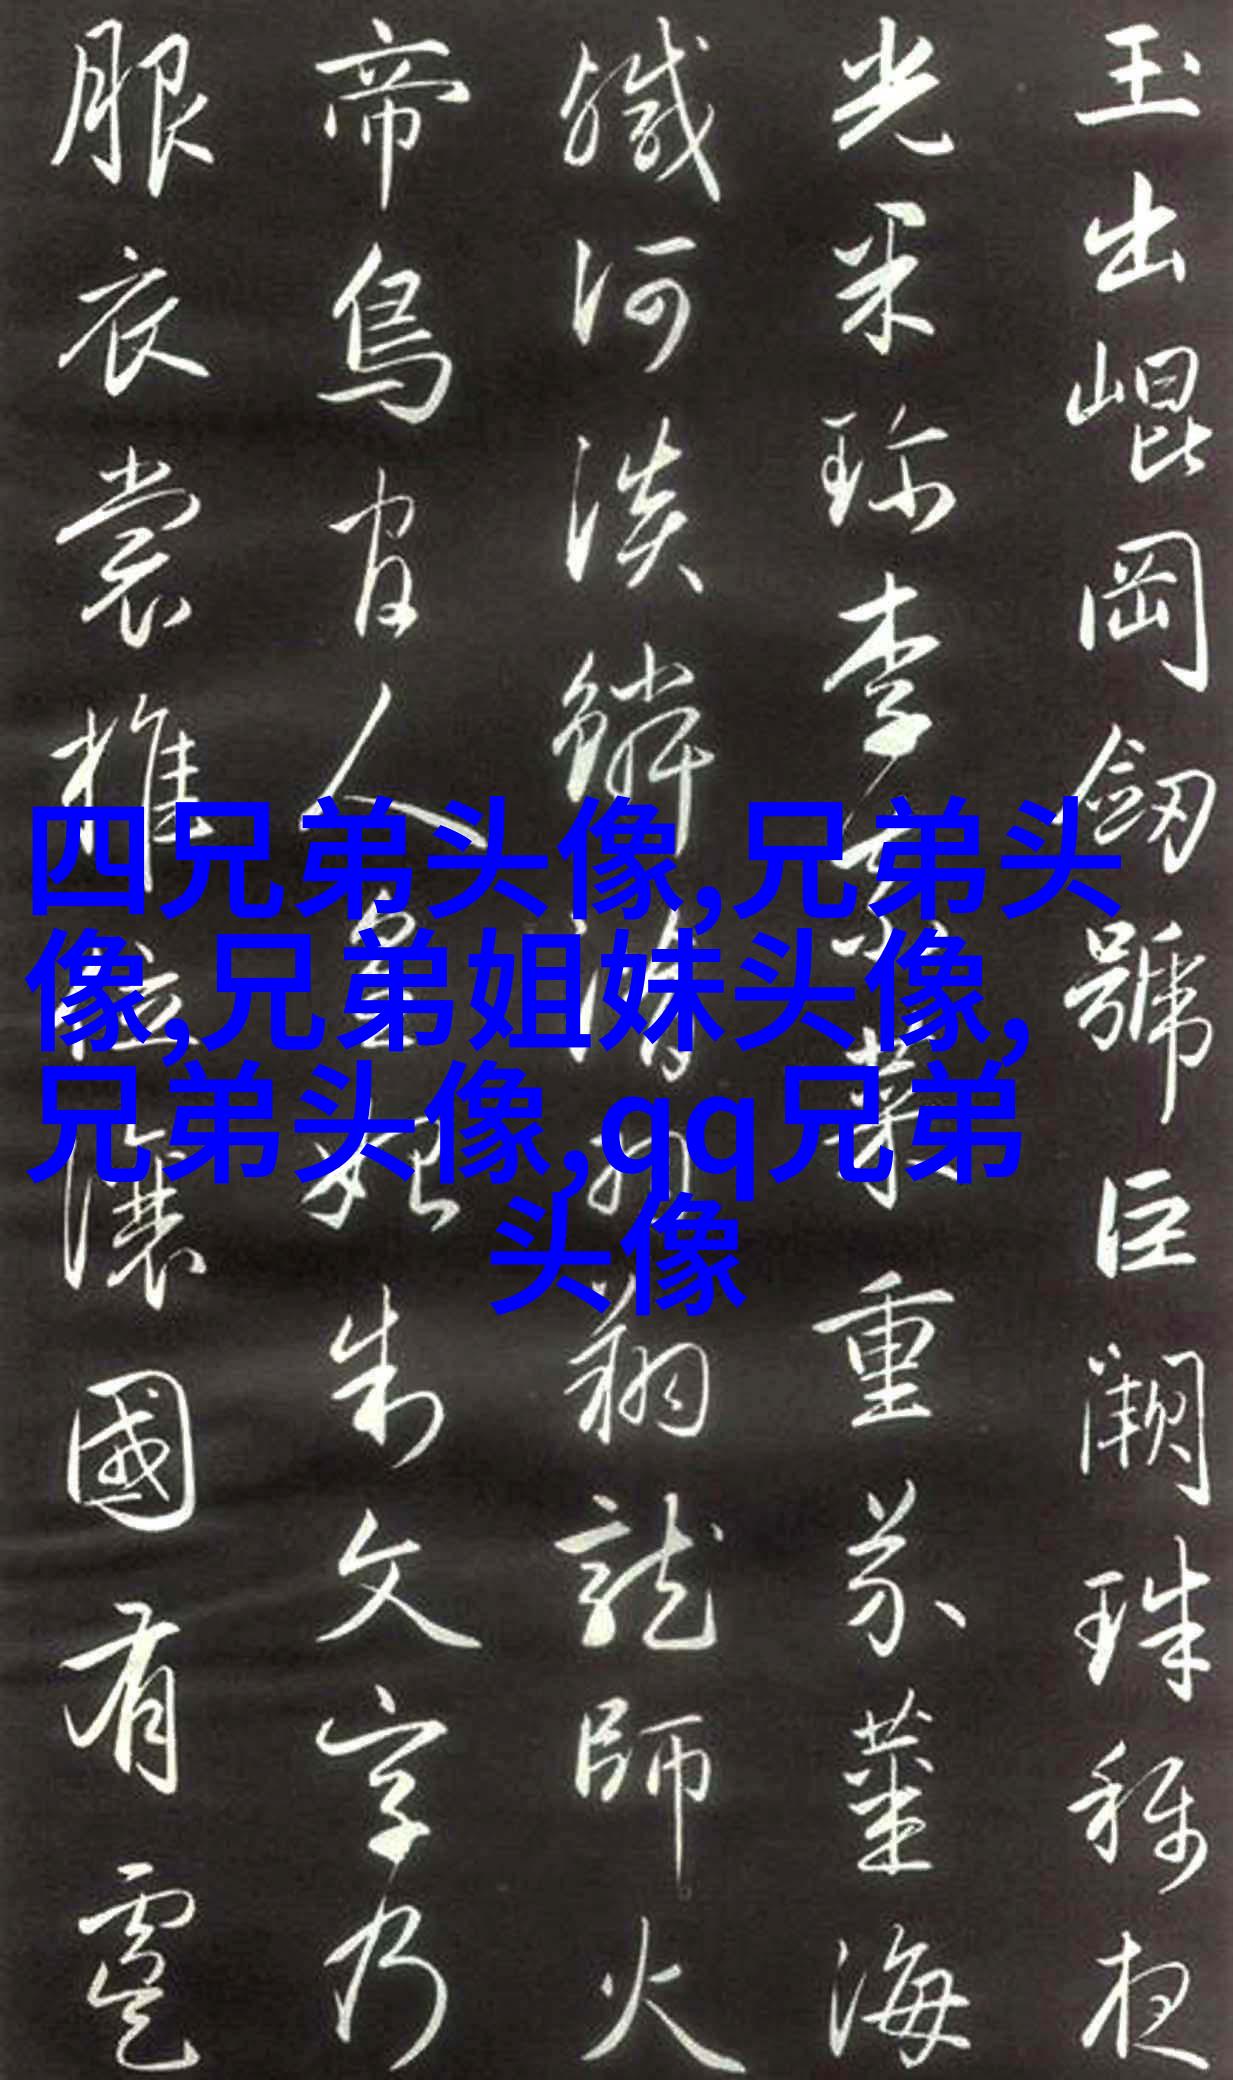 玉出崐岡劒號巨闕珠稱夜
光果珎李柰菜重芥薑海
鹹河淡鱗潛羽翔龍師火
帝鳥官人皇始制文字乃
服衣裳推位讓國有虞
四兄弟头像,兄弟头
像,兄弟姐妹头像,
兄弟头像,qq兄弟
头像